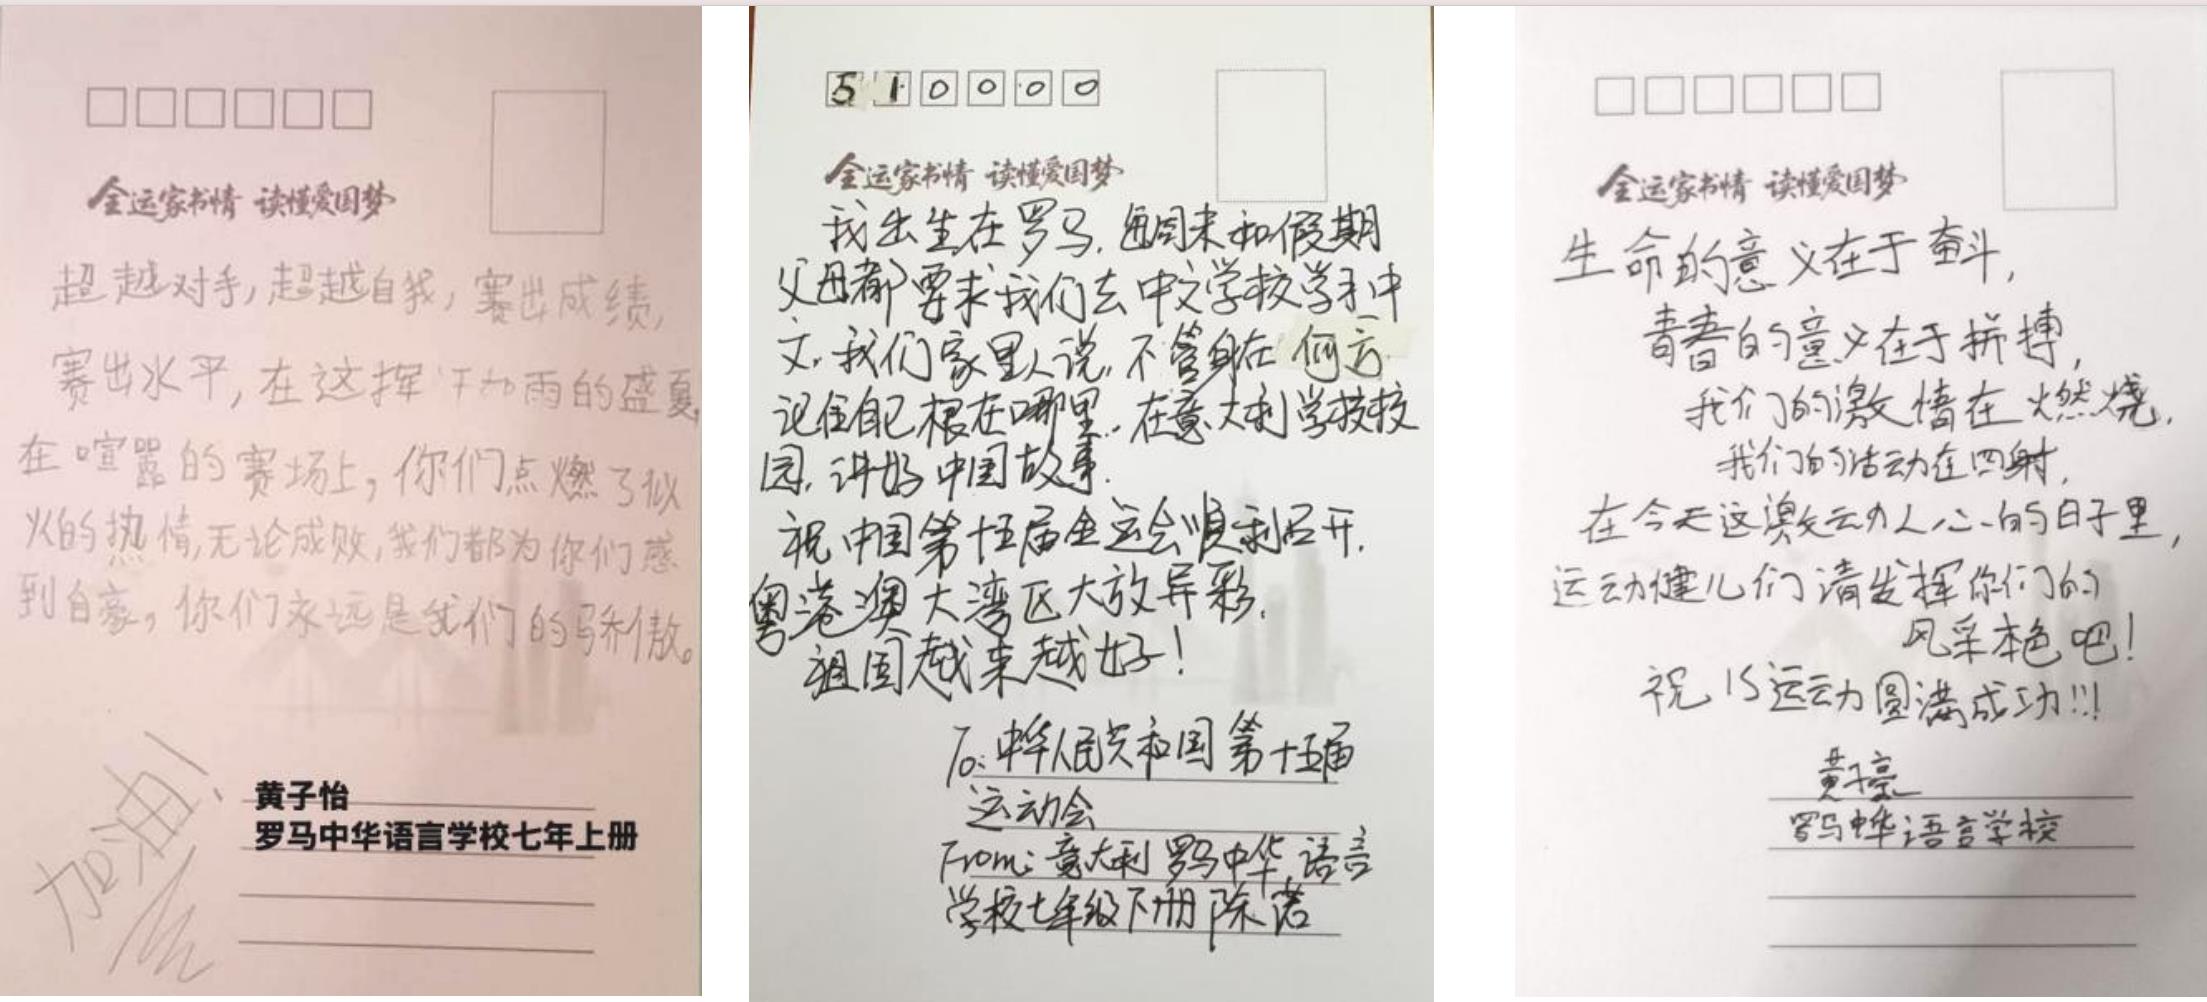 全运家书情 读懂爱国梦
超越对手,超越自我,赛出成绩,
赛出水平,在这挥汗如雨的盛夏,
在喧嚣的赛场上,你们点燃了似
火的热情,无论成败,我们都为你们感
到自豪。你们永远是我们的骄傲。
加油!
黄子怡
罗马中华语言学校七年上册
510000
全运家书情 读懂爱国梦
我出生在罗马,每周末和假期
父母都要求我们去中文学校学习中
文,我们家里人说,不管身在何方
记住自己根在哪里,在意大利学校校
园,讲好中国故事.
祝中国第十五届全运会顺利召开.
粤港澳大湾区大放异彩.
祖国越来越好!
To:中华人民共和国第十五届
运动会
From:意大利罗马中华语言
学校七年级下册陈诺
全运家书情 读懂爱国梦
生命的意义在于奋斗,
青春的意义在于拼搏,
我们的激情在燃烧,
我们的活动在四射,
在今天这激动人心的日子里,
运动健儿们请发挥你们的
风采本色吧!
祝15运动圆满成功!!!
黄子豪
罗马中华语言学校